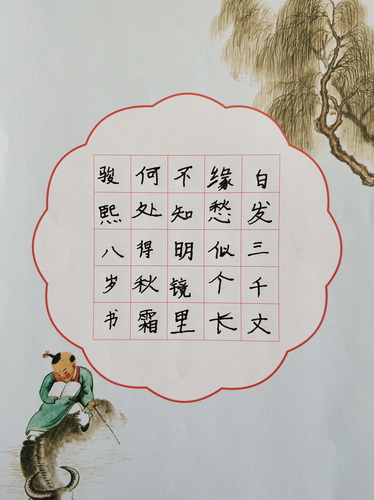 白发三千丈
缘愁似个长
不知明镜里
何处得秋霜
骏熙八岁书